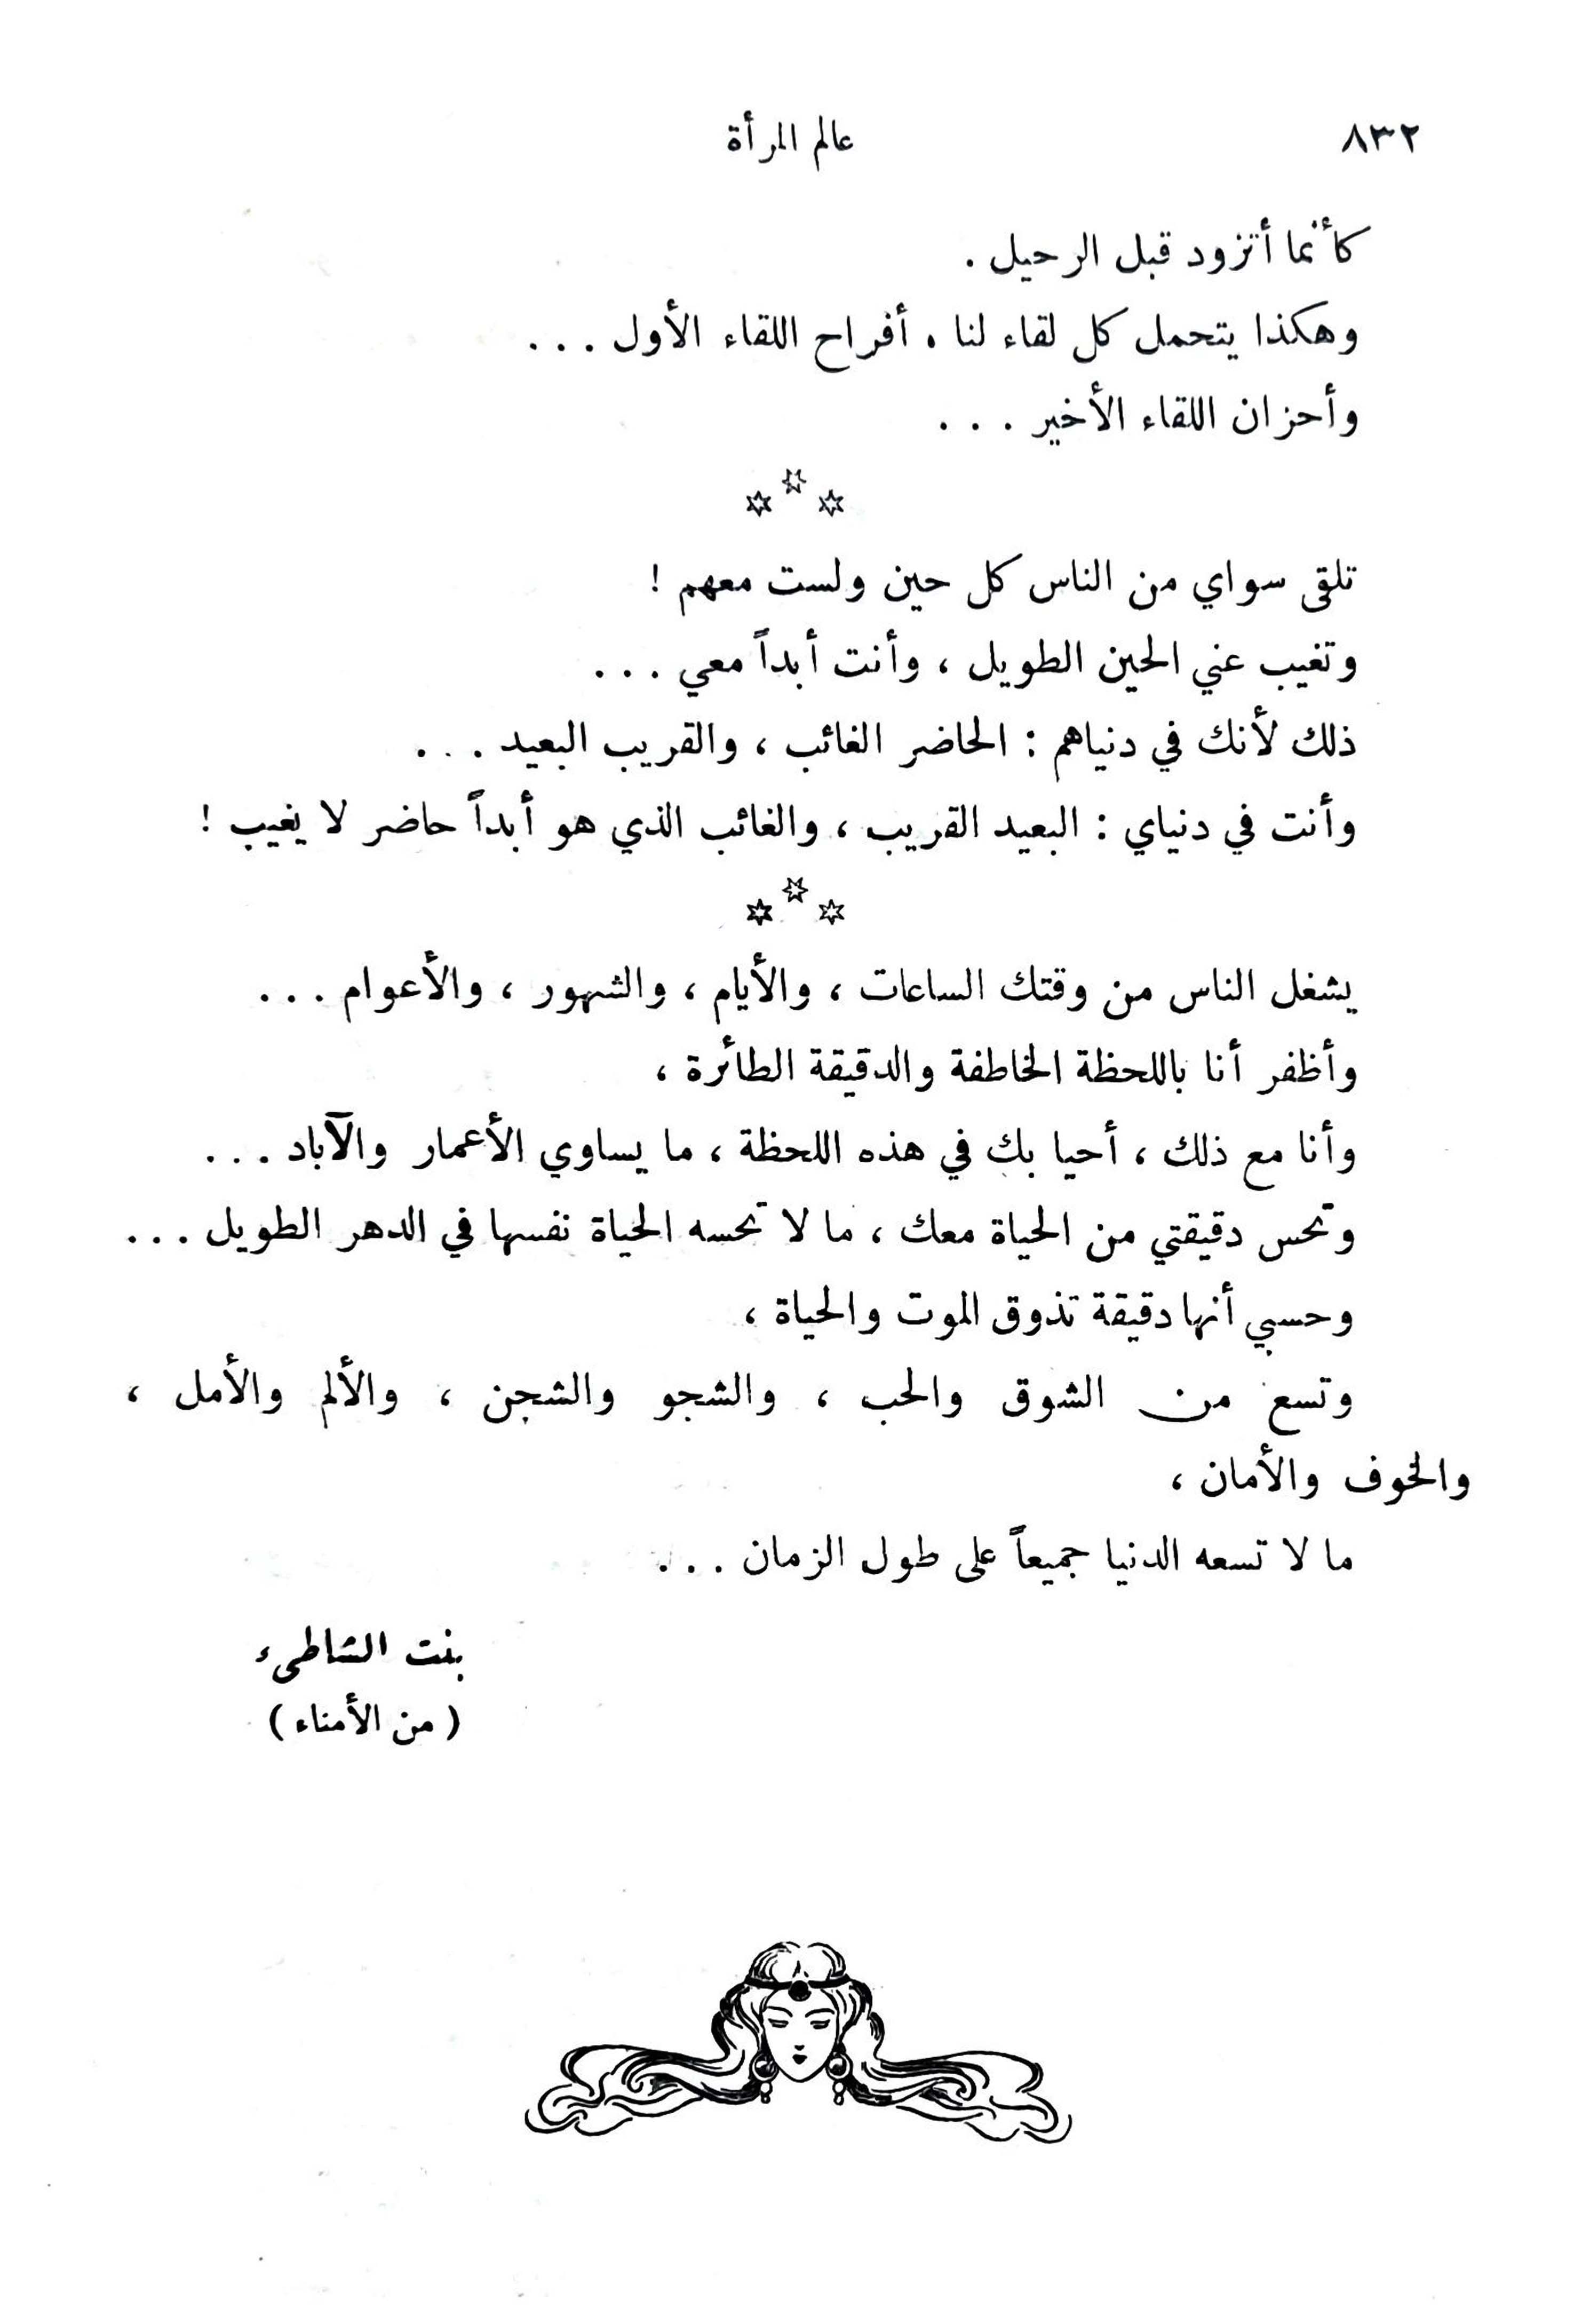 ٨٣٢ عالم المرأة
كأنما أتزود قبل الرحيل .
وهكذا يتحمل كل لقاء لنا . أفراح اللقاء الأول . . .
وأحزان اللقاء الأخير . . .
تلقى سواي من الناس كل حين ولست معهم !
وتغيب عني الحين الطويل ، وأنت أبداً معي . . .
ذلك لأنك في دنياهم : الحاضر الغائب ، والقريب البعيد . . .
وأنت في دنياي : البعيد القريب ، والغائب الذي هو أبداً حاضر لا يغيب !
يشغل الناس من وقتك الساعات ، والأيام ، والشهور ، والأعوام . . .
وأظفر أنا باللحظة الخاطفة والدقيقة الطائرة ،
وأنا مع ذلك ، أحيا بك في هذه اللحظة ، ما يساوي الأعمار والآباد . . .
وتحس دقيقتي من الحياة معك ، ما لا تحسه الحياة نفسها في الدهر الطويل . . .
وحسبي أنها دقيقة تذوق الموت والحياة ،
وتسع من الشوق والحب ، والشجو والشجن ، والألم والأمل ،
والخوف والأمان ،
ما لا تسعه الدنيا جميعاً على طول الزمان . . .
بنت الشاطىء
( من الأمناء )